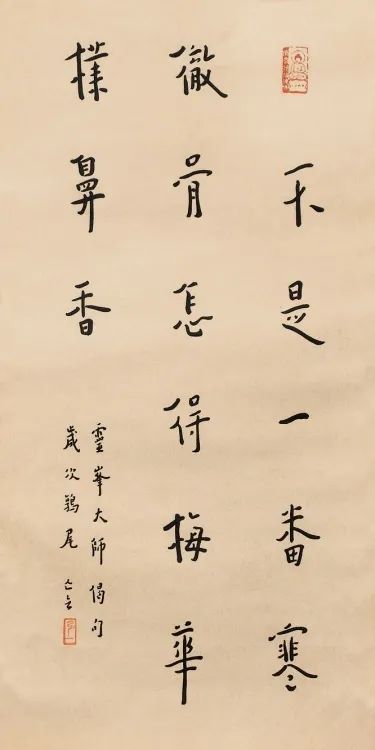 不是一番寒
徹骨怎得梅華
樸鼻香
靈峯大師偈句
歲次鶉尾 亡言